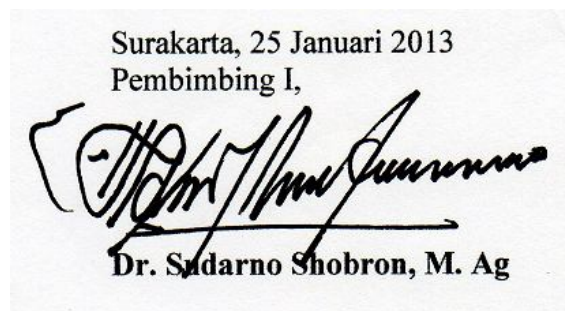 Surakarta, 25 Januari 2013
Pembimbing I,
Dr. Sudarno Shobron, M. Ag